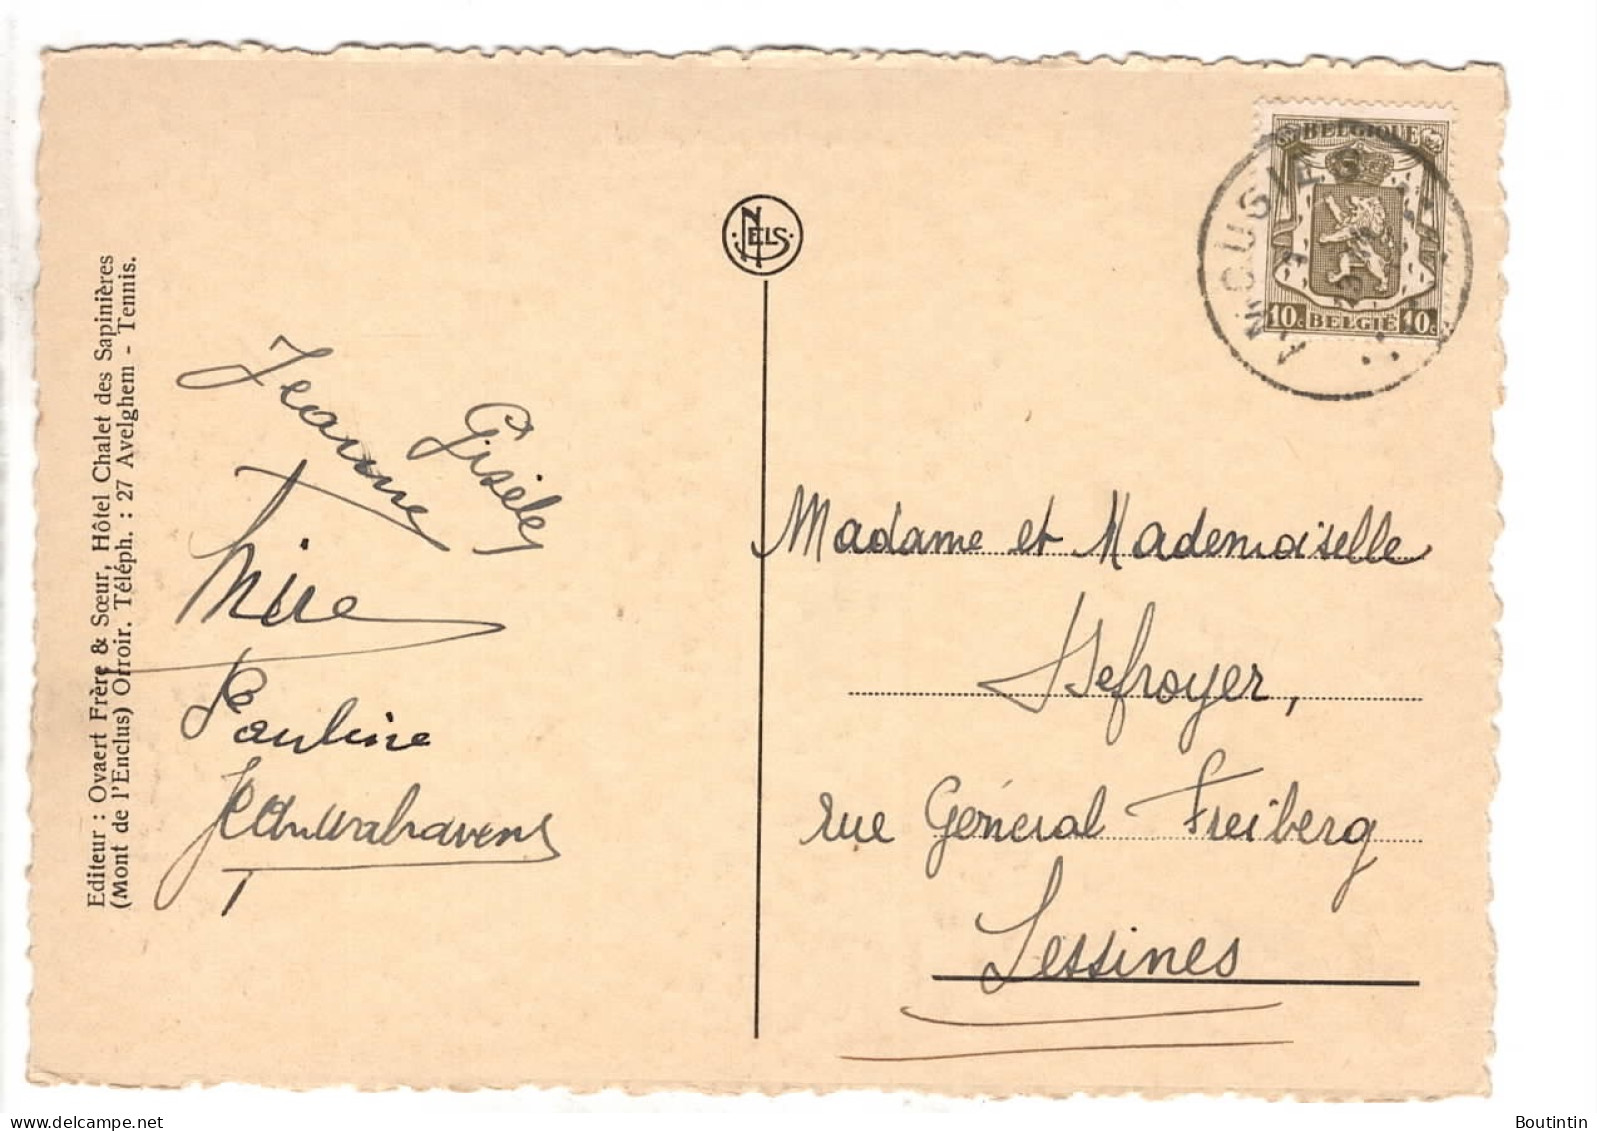 Editeur : Ovaert Frère & Sœur, Hôtel Chalet des Sapinières
(Mont de l'Enclus) Orroir. Téléph. : 27 Avelghem - Tennis.
NELS
BELGIQUE
10c BELGIË 10c
ANSEGIES
Jeanne
Gisèle
Pauline
Madame et Mademoiselle
Defroyer,
rue Général Freiberg
Lessines
Boutintin